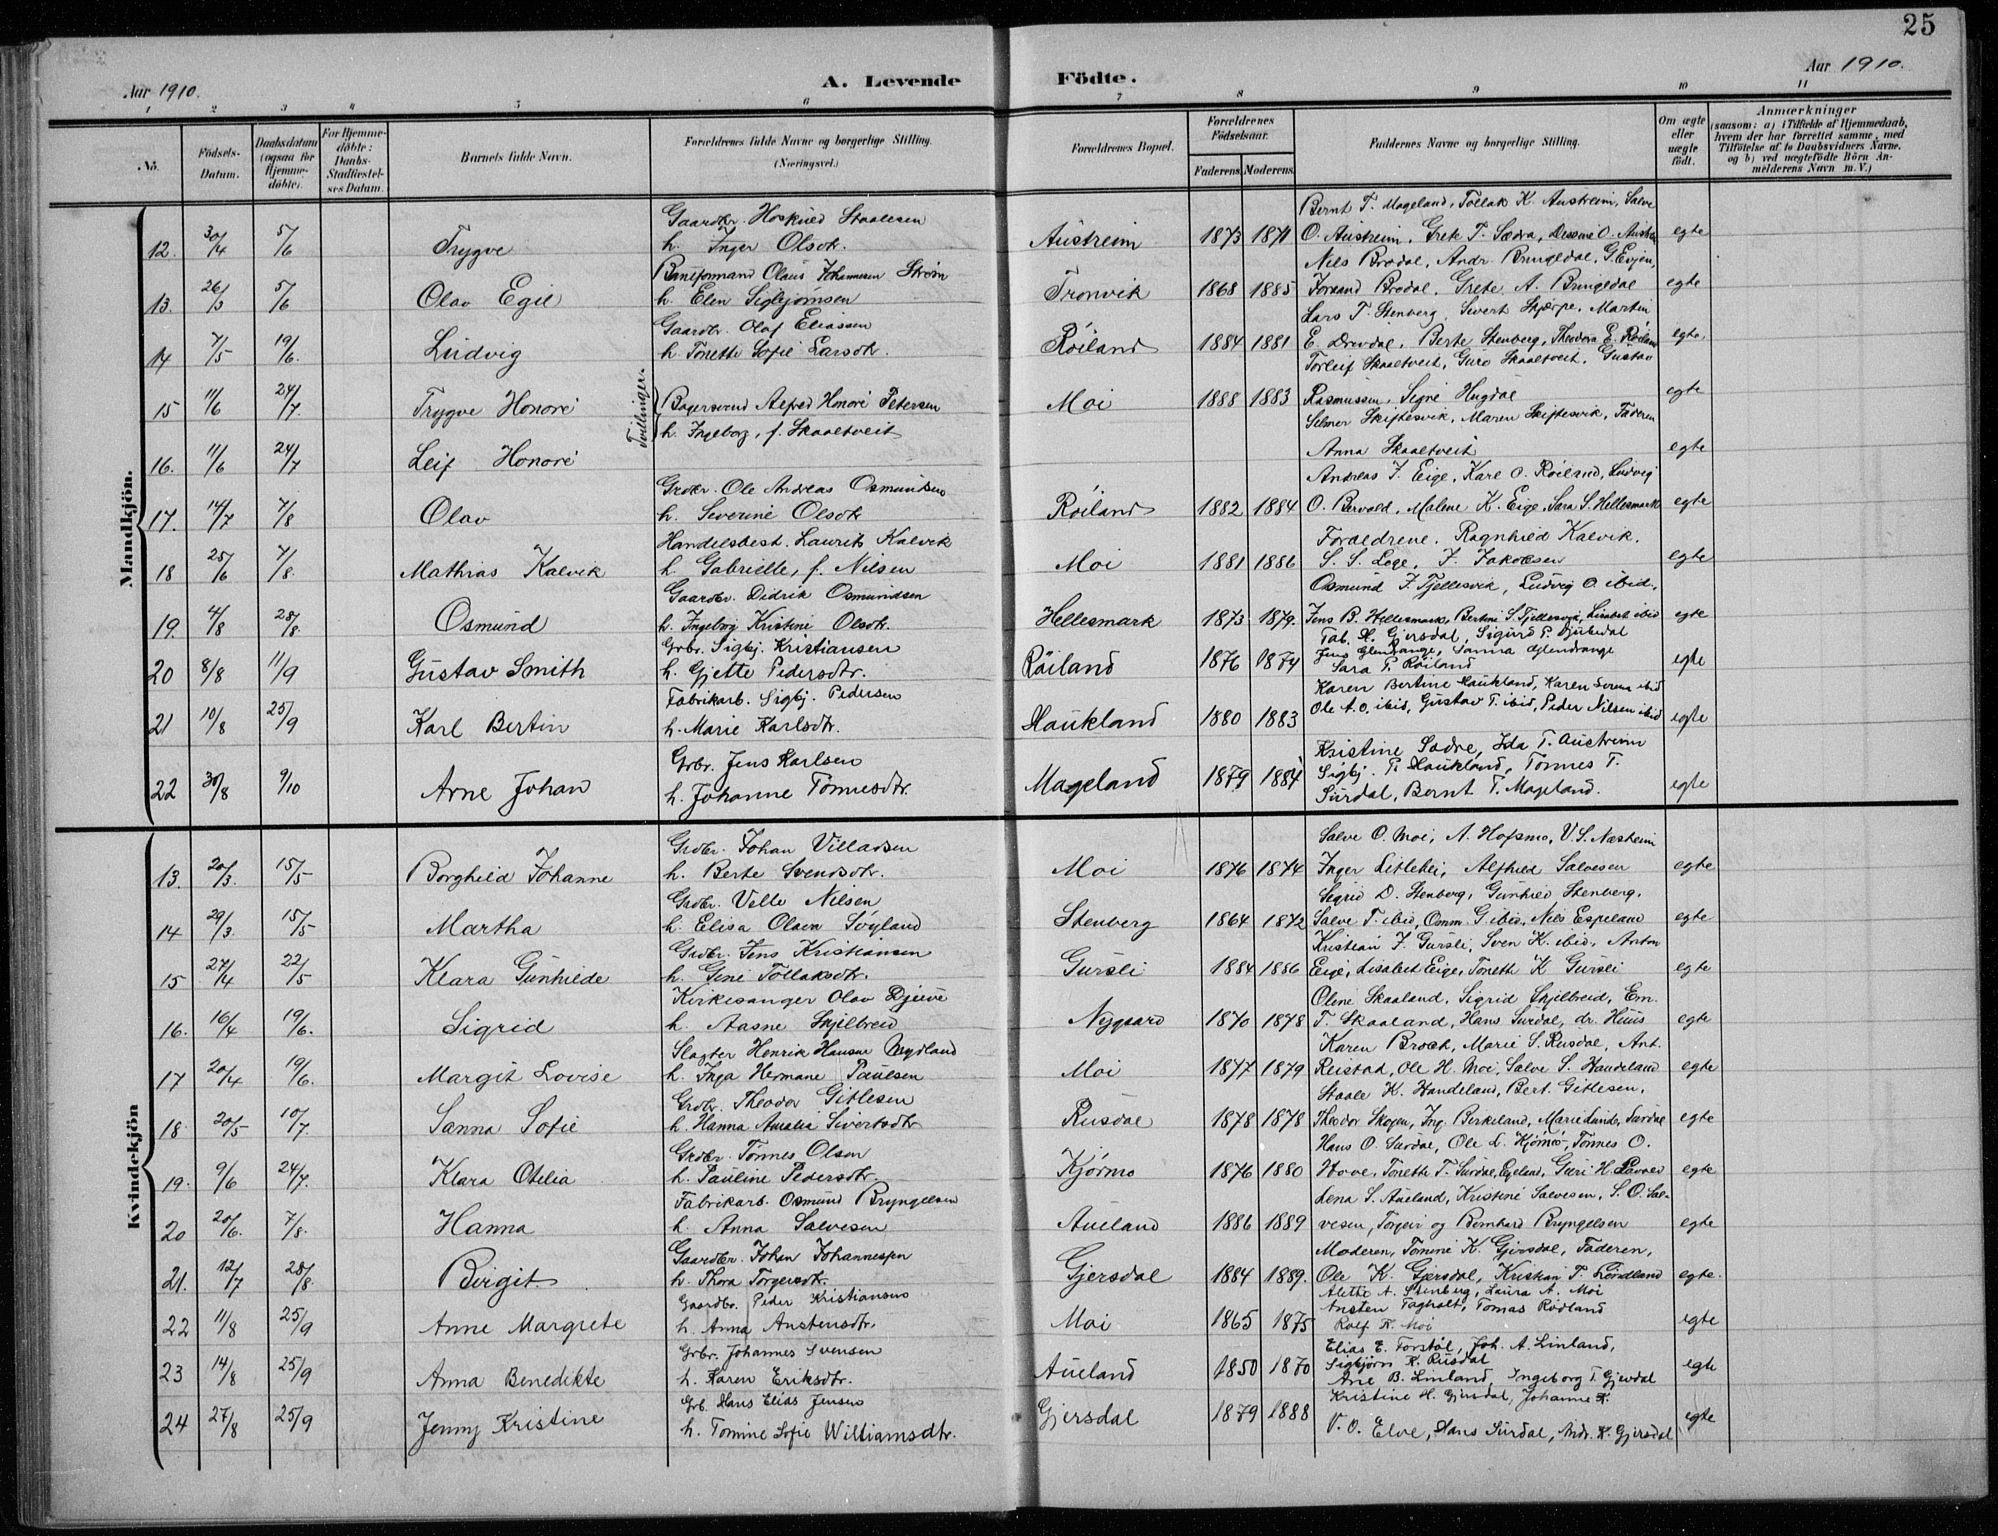 25
Aar 1910.
A. Levende Födte.
Aar 1910.
1 2 3 4 5 6 7 8 9 10 11
No. Födsels-Datum. Daabsdatum (ogsaa for Hjemmedöbte). For Hjemmedöbte: Daabs-Stadfæstelses Datum. Barnets fulde Navn. Forældrenes fulde Navne og borgerlige Stilling. (Næringsvei.) Forældrenes Bopæl. Forældrenes Födselsaar. Faderens. Moderens. Faddernes Navne og borgerlige Stilling. Om ægte eller uægte födt. Anmærkninger (saasom: a) i Tilfælde af Hjemmedaab, hvem der har forrettet samme, med Tilföielse af to Daabsvidners Navne, og b) ved uægtefödte Börn Anmelderens Navn m. V.)
Mandkjön.
Gaardbr. Hoskuld Staalesen Bernt T. Mageland, Tollak K. Austreim, Salve
12. 30/4 5/6 Trygve h. Inger Olsdtr. Austreim 1873 1871 O. Austreim, Grete T. Sædra, O. egte
Baneformand Olaus Johannesen Strøm Nils Brodal, Andr. Bringedal, G. Evjen,
13. 26/3 5/6 Olav Egil h. Elen Sigbjørnsen Tronvik 1868 1885 Forsand Brodal, Grete A. Bringedal egte
Gaardbr. Olaf Eliassen Lars T. Stenberg, Sivert Skjerpe, Martin
14 7/5 19/6. Ludvig h. Tonette Sofie Larsdtr. Røiland 1884 1881 E. Drivdal, Berte Stenberg, Theodora E. Røiland egte.
Tvillinger. Torleif Skaaltveit, Guro Skaaltveit, Gustav
15 11/6 24/7. Trygve Honoré Bagersvend Alfred Honoré Petersen Moi 1888 1883 Rasmussen, Signe Hugdal egte
h. Ingeborg, f. Skaaltveit Selmer Skiftesvik, Maren Skiftesvik, Faderen
16. 11/6 24/7 Leif Honoré Anna Skaaltveit egte
Grdbr. Ole Andreas Osmundsen Andreas J. Eige, Karl O. Røiland, Ludvig
17. 14/7 7/8 Olav h. Severine Olsdtr Røiland 1882 1884 O. Bervald, Malene K. Eige, Sara S. Hellesmark egte
Handelsbest. Laurits Kalvik Forældrene. Ragnhild Kalvik.
18 25/6 7/8. Mathias Kalvik h. Gabrielle, f. Nilsen Moi 1881 1886 S. S. Loge, J. Jakobsen egte
Gaardbr. Didrik Osmundsen Osmund J. Tjellesvik, Ludvig O ibid.
19. 4/8 28/8. Osmund h. Ingeborg Kristine Olsdtr. Hellesmark 1873 1879. Jens B. Hellesmark, Bertine S. Tjellesvik, Lisabet ibid egte
Grbr. Sigbj. Kristiansen Tab. H. Gjersdal, Sigurd P.
20 8/8 11/9 Gustav Smith h. Gjette Pedersdtr. Røiland 1876 1874 Jens Glendrange, Sanna Glendrange egte
Sara P. Røiland
Fabrikarb. Sigbj. Pedersen Karen Bertine Haukland, Karen Serena ibid
21 10/8 25/9 Karl Bertin h. Marie Karlsdtr. Haukland 1880 1883 Ole A. O. ibid, Gustav T. ibid, Peder Nilsen ibid egte
Grbr. Jens Karlsen Kristine Sædre, Ida T. Austreim
22 30/8 9/10 Arne Johan h. Johanne Tönnesdtr. Mageland 1879 1884 Sigbj. P. Haukland, Tönnes T. egte
Surdal, Bernt T. Mageland.
Kvindekjön
Grdbr. Johan Villadsen Salve O. Moi, A. Hofsmo, V. S. Næsheim
13. 20/3. 15/5 Borghild Johanne h. Berte Svendsdtr. Moi 1876 1874 Inger Litlehei, Alfhild Salvesen egte
Grdbr. Velle Nilsen Sigrid D. Stenberg, Gunhild Stenberg,
14 29/3. 15/5 Martha h. Elisa Olsen Søyland Stenberg 1864 1872 Salve T. ibid, Omm. G. ibid, Nils Espeland egte
Grdbr. Jens Kristiansen Kristian J. Gursli, Sven K. ibid, Anton
15 27/4 22/5 Klara Gunhilde h. Gine Tollaksdtr. Gursli 1884 1886 Eige, Lisabet Eige, Tonette K Gursli egte
Kirkesanger Olav Djuve Oline Skaaland, Sigrid Skjilbreid, Em.
16. 16/4 19/6. Sigrid h. Aasne Skjilbreid Nygaard 1870 1878 T. Skaaland, Hans Surdal, dr. Huus egte
Slagter Henrik Hansen Mydland Karen Broch, Marie S. Rusdal, Ant.
17 20/4 19/6. Margit Lovise h. Inga Hermane Paulsen Moi 1877 1879 Reistad, Ole H. Moi, Salve S. Handeland egte
Grdbr. Theodor Gitlesen Staale K. Handeland, Bert. Gitlesen,
18 20/5 10/7. Sanna Sofie h. Hanna Amalia Sivertsdtr Rusdal 1878 1878 Theodor Skogen, Ing. Birkeland, Marie Lunde, Surdal egte
Grdbr. Tönnes Olsen Hans O. Surdal, Ole L. Kjørmo, Tönnes O.
19. 9/6 24/7. Klara Otelia h. Pauline Pedersdtr. Kjørmo 1876 1880 Hove, Tonette T. Surdal, Egeland, Guri H. egte
Fabrikarb. Osmund Bryngelsen Lena S. Aueland, Kristine Salvesen, S. O. Sal-
20 20/6. 7/8. Hanna h. Anna Salvesen Aueland 1886 1889 vesen, Torgeir og Bernhard Bryngelsen egte
Gaardbr. Johan Johannessen Moderen, Tomine K. Gjersdal, Faderen,
21. 12/7 28/8 Birgit h. Thora Torgersdtr. Gjersdal 1884 1889. Ole K. Gjersdal, Kristian T. Lindland egte.
Gaardbr. Peder Kristiansen Alette A. Stenberg, Laura A. Moi
22 11/8 25/9 Anne Margrete h. Anna Austensdtr. Moi 1865 1875 Austen Tagholt, Tomas Rödland egte
Rolf R. Moi
Grbr. Johannes Svensen Elias E. Forstöl, Joh. A. Linland,
23 14/8 25/9 Anna Benedikte h. Karen Eriksdtr. Aueland 1850 1870 Sigbjörn K. Rusdal egte
Ane B. Linland, Ingeborg T. Gjersdal
Grb. Hans Elias Jensen Kristine H. Gjersdal, Johanne K.
24 27/8 25/9 Jenny Kristine h. Tomine Sofie Williamsdtr. Gjersdal 1879 1888 V. O. Elve, Hans Surdal, Andr. K. Gjersdal egte